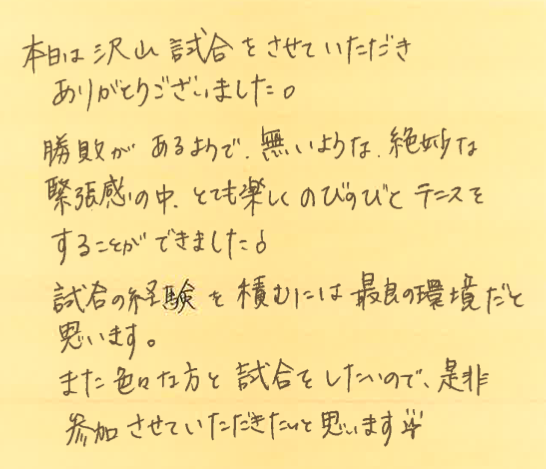 本日は沢山試合をさせていただき
ありがとうございました。
勝敗が あるようで、無いような、絶妙な
緊張感の中、とても楽しくのびのびとテニスを
することができました♪
試合の経験を積むには最良の環境だと
思います。
また色々な方と試合をしたいので、是非
参加させていただきたいと思います